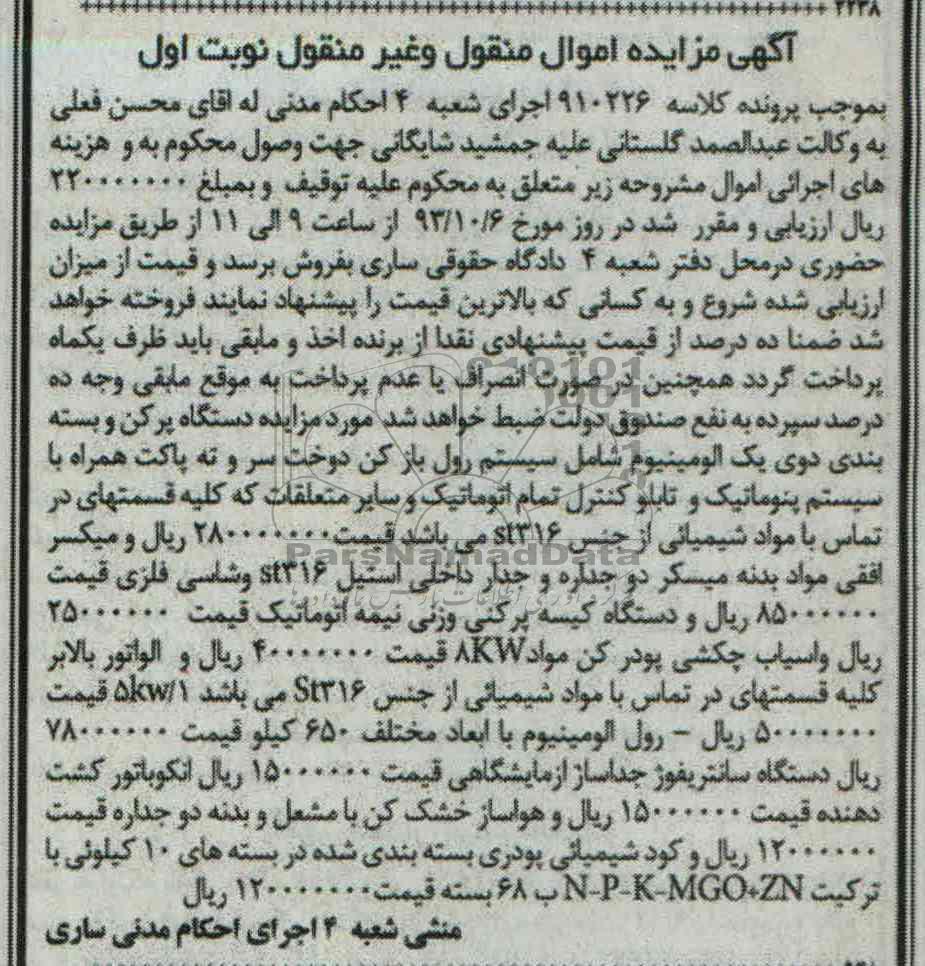 ۲۲۳۸
آگهی مزایده اموال منقول وغیر منقول نوبت اول
بموجب پرونده کلاسه ۹۱۰۲۲۶ اجرای شعبه ۴ احکام مدنی له اقای محسن فعلی
به وکالت عبدالصمد گلستانی علیه جمشید شایگانی جهت وصول محکوم به و هزینه
های اجرائی اموال مشروحه زیر متعلق به محکوم علیه توقیف و بمبلغ ۲۲۰۰۰۰۰۰۰۰
ریال ارزیابی و مقرر شد در روز مورخ ۹۳/۱۰/۶ از ساعت ۹ الی ۱۱ از طریق مزایده
حضوری درمحل دفتر شعبه ۴ دادگاه حقوقی ساری بفروش برسد و قیمت از میزان
ارزیابی شده شروع و به کسانی که بالاترین قیمت را پیشنهاد نمایند فروخته خواهد
شد ضمنا ده درصد از قیمت پیشنهادی نقدا از برنده اخذ و مابقی باید ظرف یکماه
پرداخت گردد همچنین در صورت انصراف یا عدم پرداخت به موقع مابقی وجه ده
درصد سپرده به نفع صندوق دولت ضبط خواهد شد مورد مزایده دستگاه پرکن و بسته
بندی دوی پک الومینیوم شامل سیستم رول باز کن دوخت سر و ته پاکت همراه با
سیستم پنوماتیک و تابلو کنترل تمام اتوماتیک و سایر متعلقات که کلیه قسمتهای در
تماس با مواد شیمیائی از جنس st۳۱۶ می باشد قیمت۲۸۰۰۰۰۰۰۰۰ ریال و میکسر
ParsNamadData
افقی مواد بدنه میسکر دو جداره و جدار داخلی استیل st۳۱۶ وشاسی فلزی قیمت
۸۵۰۰۰۰۰۰ ریال و دستگاه کیسه پرکنی وزنی نیمه اتوماتیک قیمت ۲۵۰۰۰۰۰۰
ریال واسیاب چکشی پودر کن مواد۸KW قیمت ۴۰۰۰۰۰۰۰ ریال و الواتور بالابر
کلیه قسمتهای در تماس با مواد شیمیائی از جنس St۳۱۶ می باشد ۵kw/۱ قیمت
۵۰۰۰۰۰۰۰ ریال – رول الومینیوم با ابعاد مختلف ۶۵۰ کیلو قیمت ۷۸۰۰۰۰۰۰
ریال دستگاه سانتریفوژ جداساز ازمایشگاهی قیمت ۱۵۰۰۰۰۰۰ ریال انکوباتور کشت
دهنده قیمت ۱۵۰۰۰۰۰۰ ریال و هواساز خشک کن با مشعل و بدنه دو جداره قیمت
۱۲۰۰۰۰۰۰ ریال و کود شیمیائی پودری بسته بندی شده در بسته های ۱۰ کیلوئی با
ترکیت N-P-K-MGO+ZN ب ۶۸ بسته قیمت۱۲۰۰۰۰۰۰۰ ریال
منشی شعبه ۴ اجرای احکام مدنی ساری